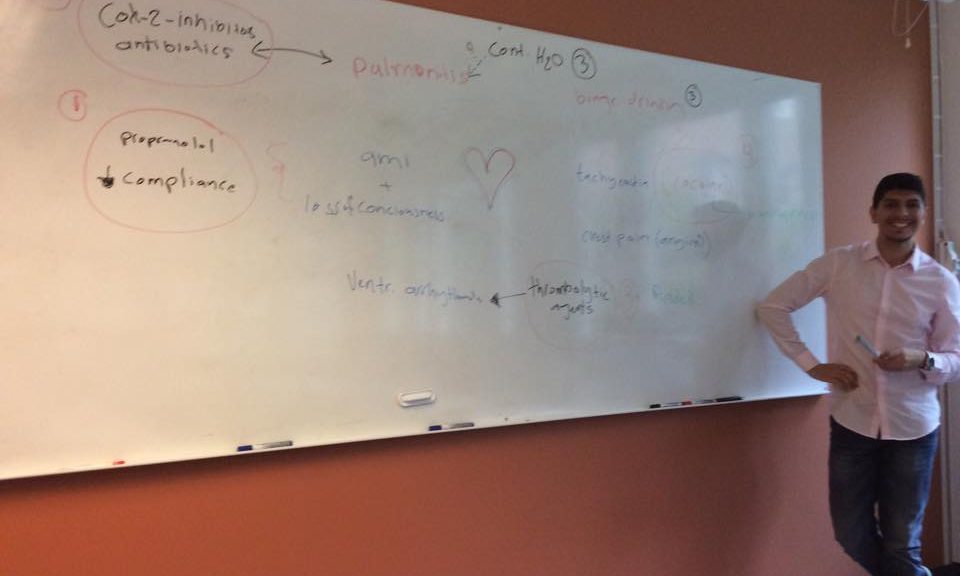 Cox-2-inhibitos
antibiotics
pulmonitis
Cont. H2O ③
binge drinkin ③
①
propranolol
↓ compliance
ami
+
loss of conciousness
tachycardia (cocaine)
chest pain (angina)
Ventr. arrhythmia
thrombolytic
agents